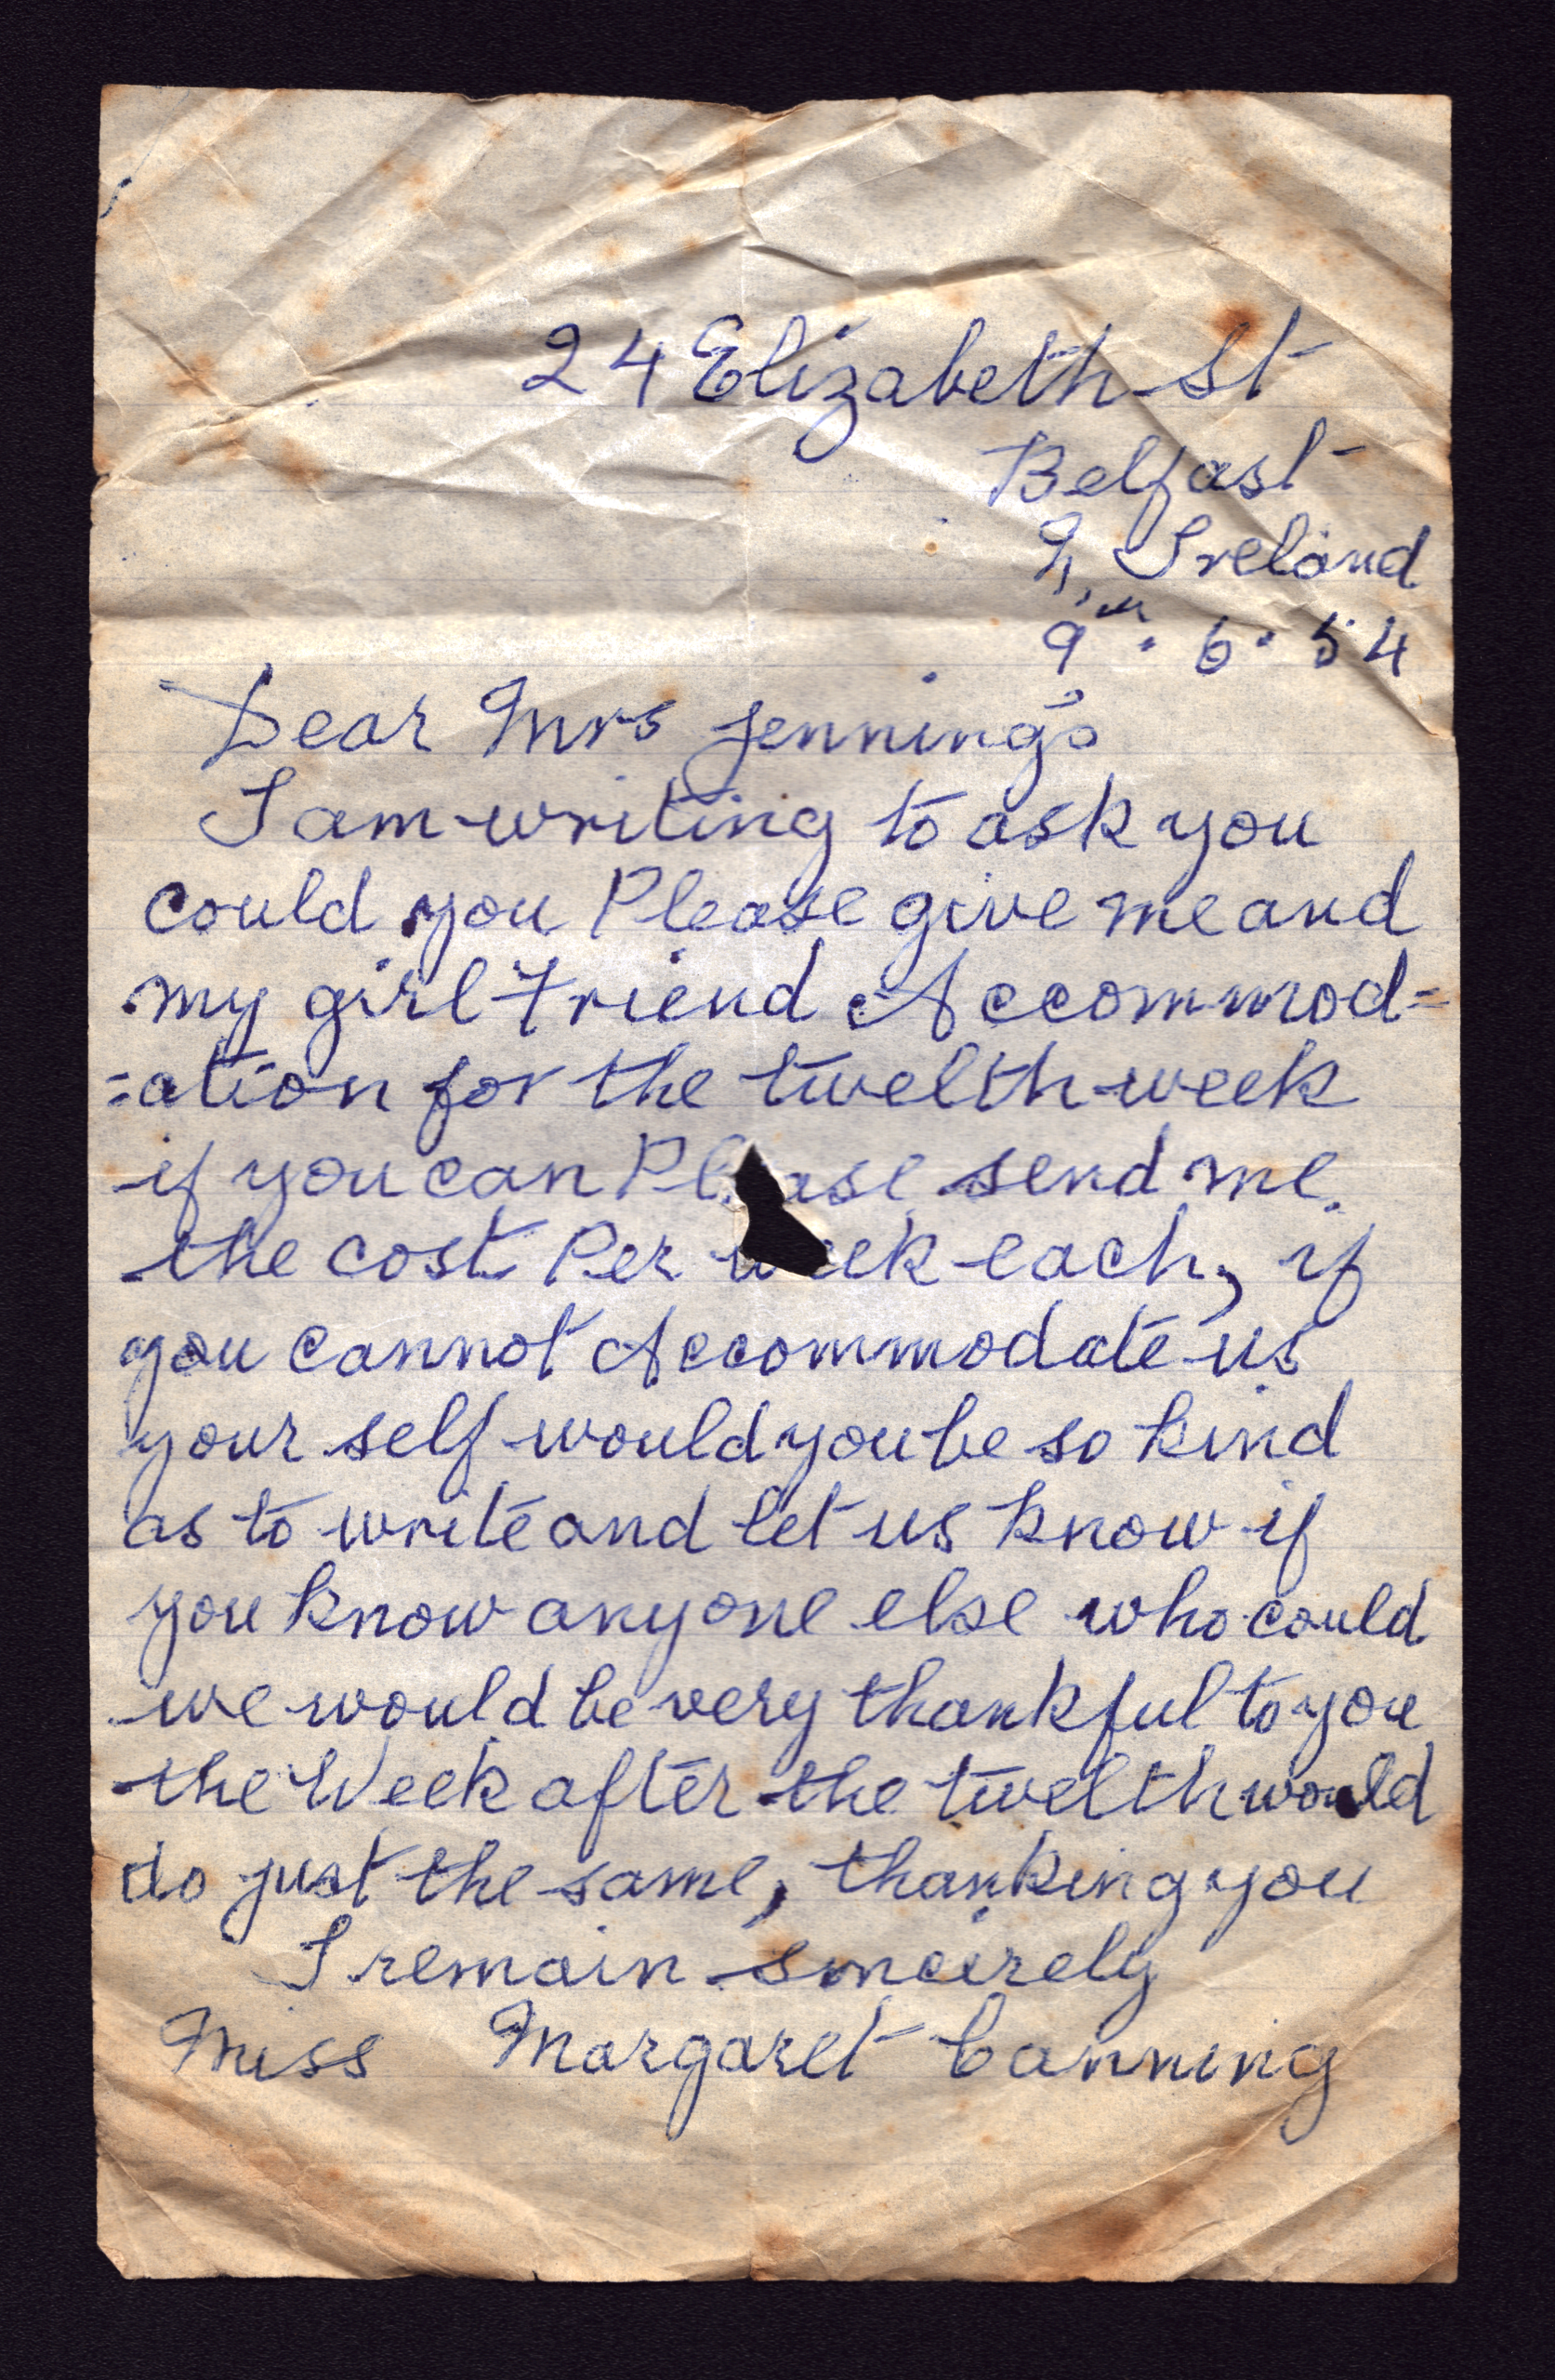 24 Elizabeth St
Belfast
N. Ireland
9th. 6. 54
Dear Mrs Jenning's
I am writing to ask you
could you Please give me and
my girl Friend Accommod=
=ation for the twelth week
if you can Please send me
the cost Per week each, if
you cannot Accommodate us
your self would you be so kind
as to write and let us know if
you know anyone else who could
we would be very thankful to you
the Week after the twelth would
do just the same, thanking you
I remain sinceirely
Miss Margaret Canning